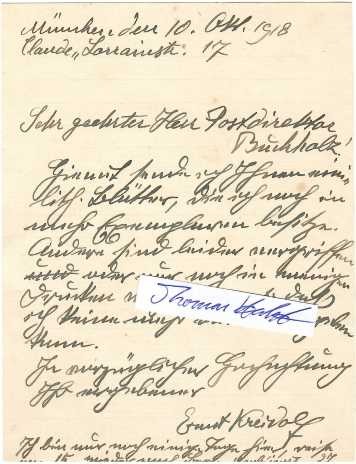 München, den 10. Okt. 1918
Claude Lorrainstr. 17
Sehr geehrter Herr Postdirektor
Buchholz!
Hiermit sende ich Ihnen eini
lith. Blätter, die ich noch in
mehr Exemplaren besitze.
Andere sind leider vergriffen
und oder nur noch in wenigen
Drucken daß
ich keine mehr
kann.
In vorzüglicher Hochachtung
Ihr ergebener
Ernst Kreidolf
Ich bin nur noch einige Tage hier, reise